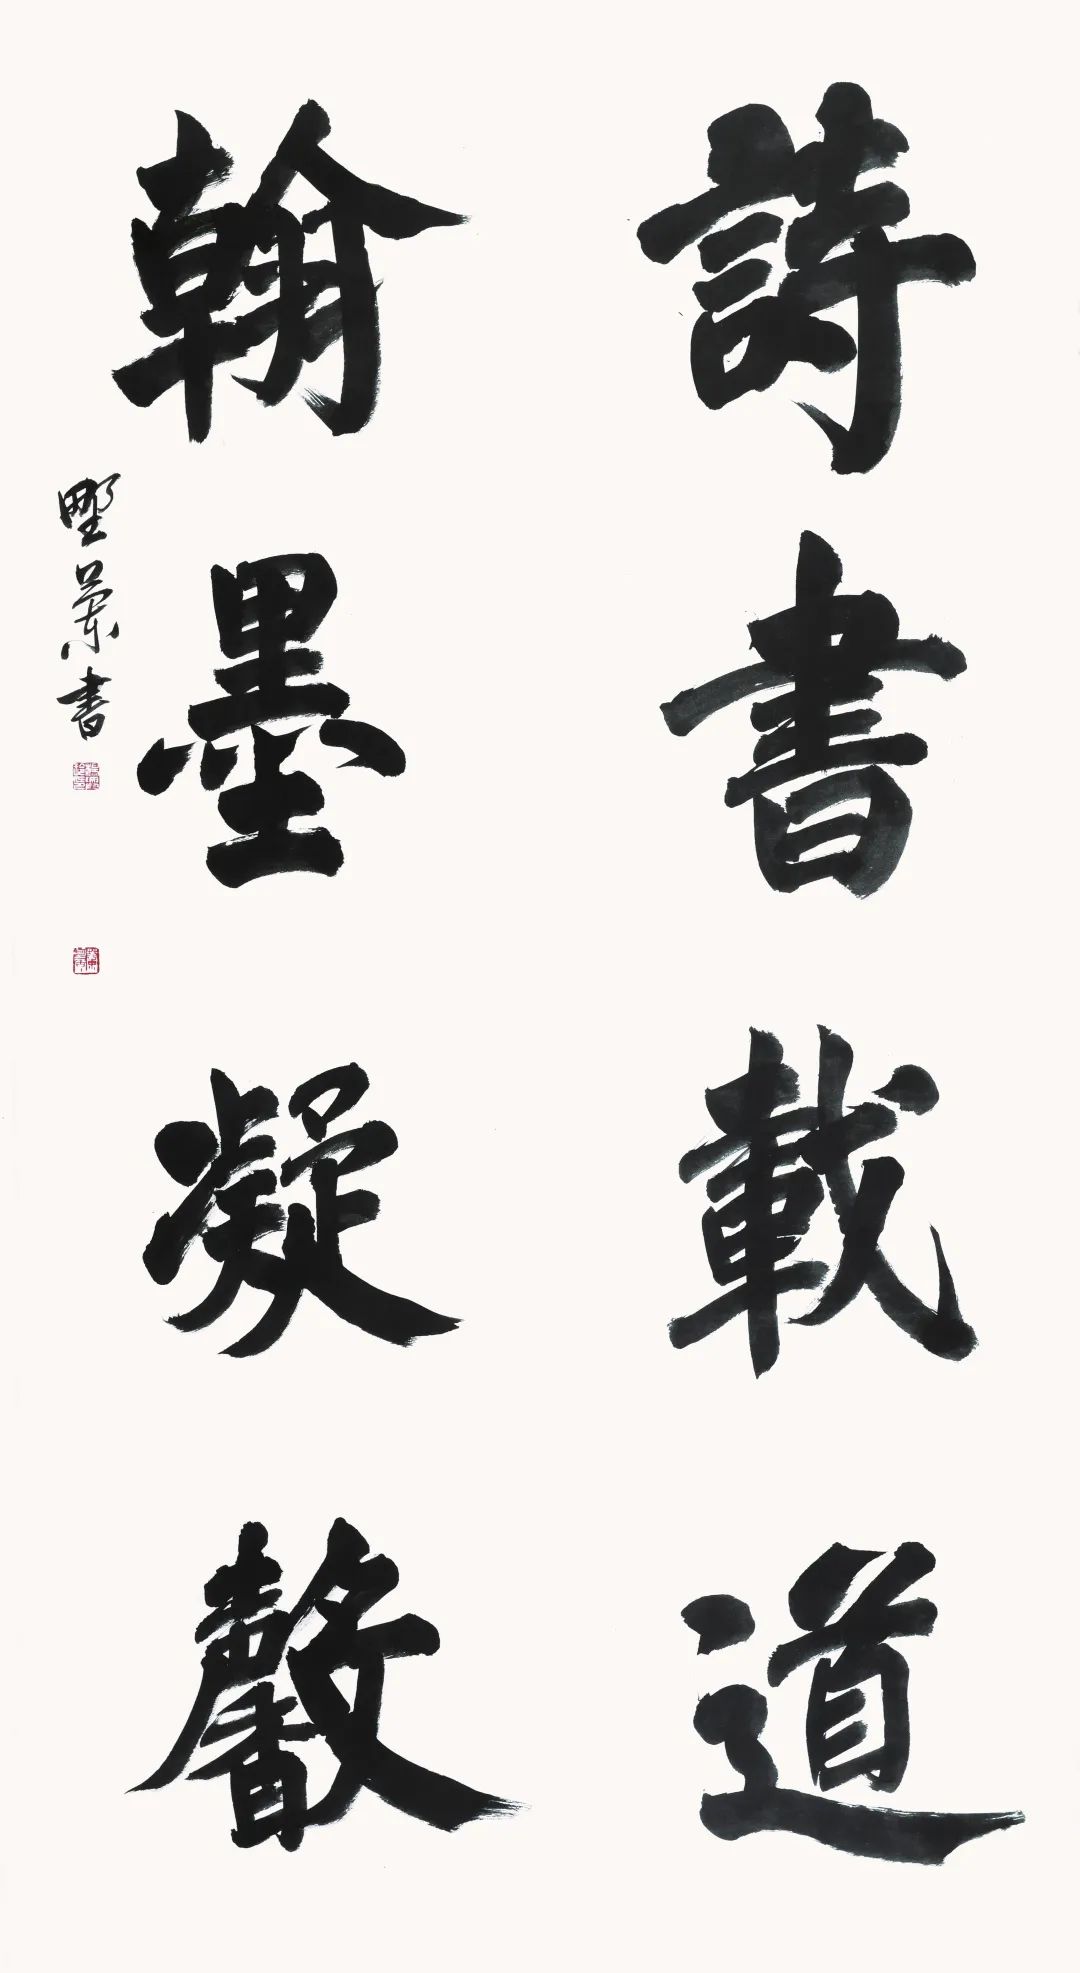 詩書載道
翰墨凝馨
野蘭書